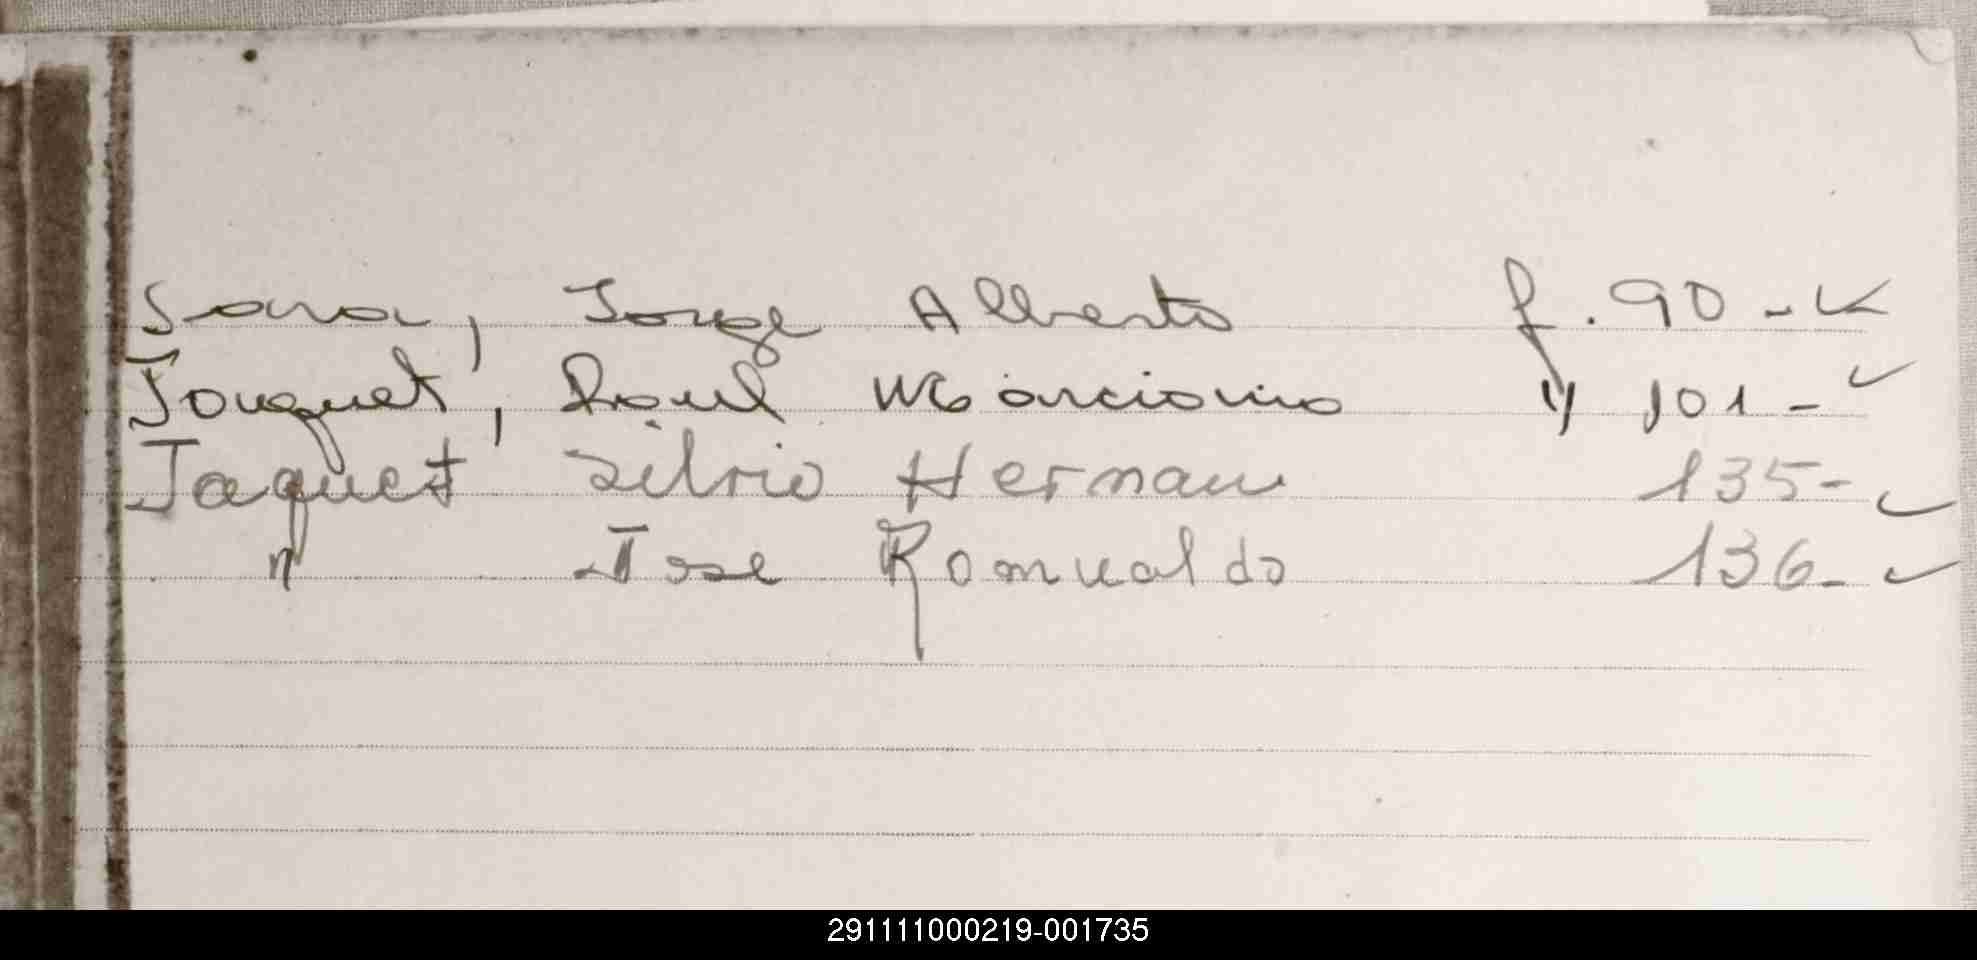 Jara, Jorge Alberto f. 90 - ✓
Jouquet, Raul Marciano " 101 - ✓
Jaquet Silvio Hernan 135 - ✓
" Jose Romualdo 136 - ✓
291111000219-001735